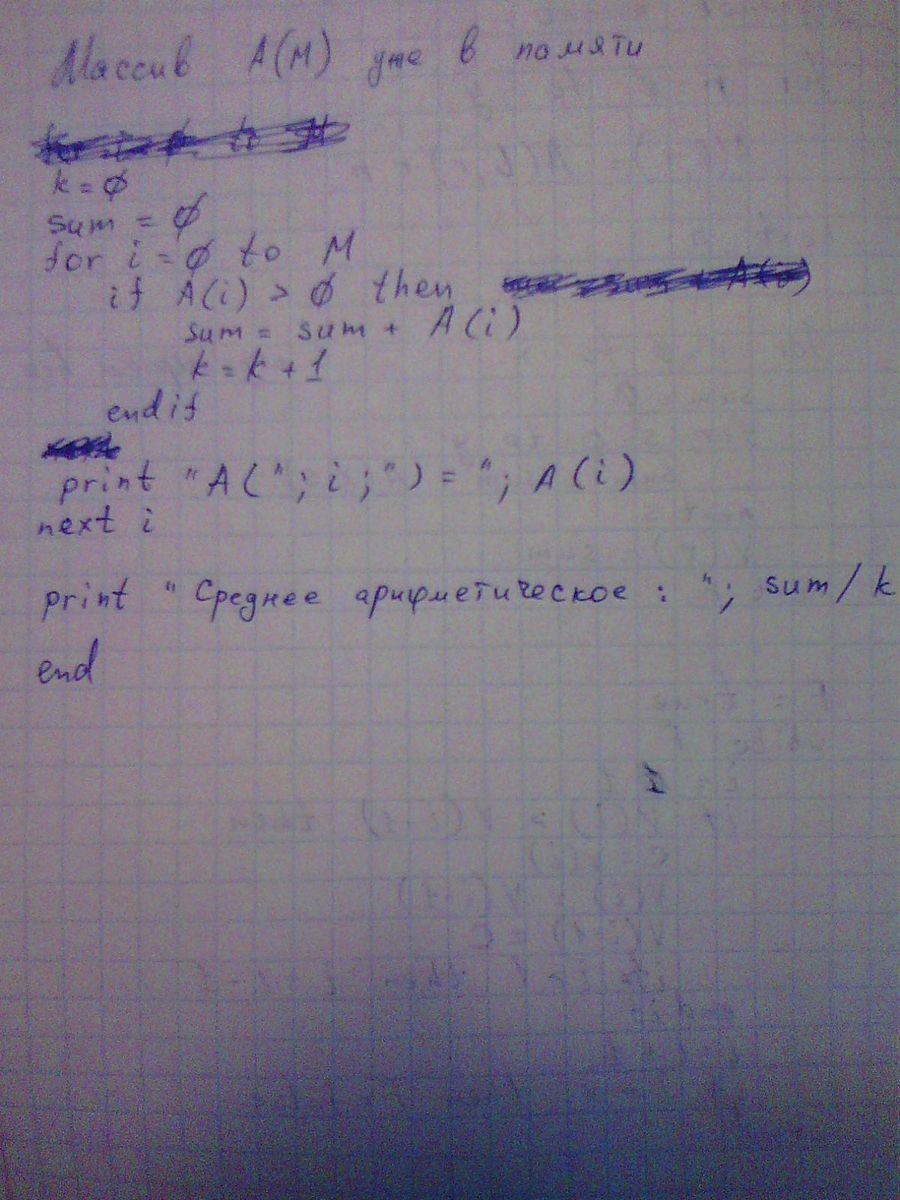 Массив A(M) уже в памяти
k = 0
sum = 0
for i = 0 to M
if A(i) > 0 then
sum = sum + A(i)
k = k + 1
endif
print "A("; i; ") = "; A(i)
next i
print "Среднее арифметическое : "; sum / k
end